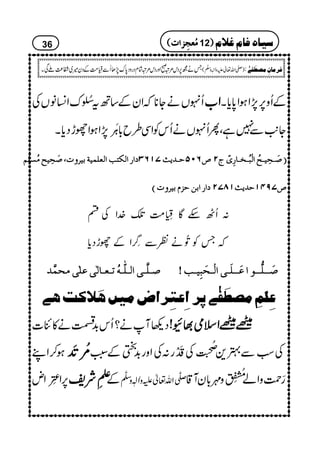 سیاہ فام غلام (12 مُعجِزات) 36
فرمانِ مصطفٰے
کے اُوپر پڑا ہوا پایا۔ اب اُنہوں نے جانا کہ ان کے ساتھ یہ سُلوک انسانوں کی
جانب سے نہیں ہے، پھر اُنہوں نے اُس کو اسی طرح باہَر پڑا ہوا چھوڑ دیا۔
(صَحِیحُ الْبُخارِیّ ج٢ ص٥٠٦ حدیث ٣٦١٧ دار الکتب العلمیة بیروت، صَحِیح مُسلِم
ص١٤٩٧ حدیث ٢٧٨١ دار ابن حزم بیروت)
نہ اُٹھ سکے گا قِیامت تلک خدا کی قسم
کہ جس کو تُو نے نظر سے گِرا کے چھوڑ دیا
صَلُّوا عَلَی الْحَبِیب! صلَّی اللّٰہُ تعالٰی علٰی محمَّد
عِلمِ مصطَفٰے پر اِعتِراض میں ھَلاکت ھے
میٹھے میٹھے اسلامی بھائیو! دیکھا آپ نے؟ اُس بدقسمت نے کائنات
کی سب سے بہترین صُحبت کی قَدَر نہ کی اور بدبختی کے سبب مُرتَد ہو کر اپنے
رَحمت والے مُشفِق ومہربان آقا صلَّی اللہ تعالٰی علیہ واٰلہٖ وسلَّم کے عِلمِ شریف پر اِعتِراض